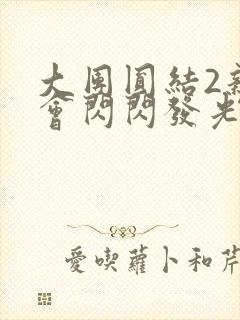 大団圓結2新
會閃閃發光
愛喫蘿卜和芹